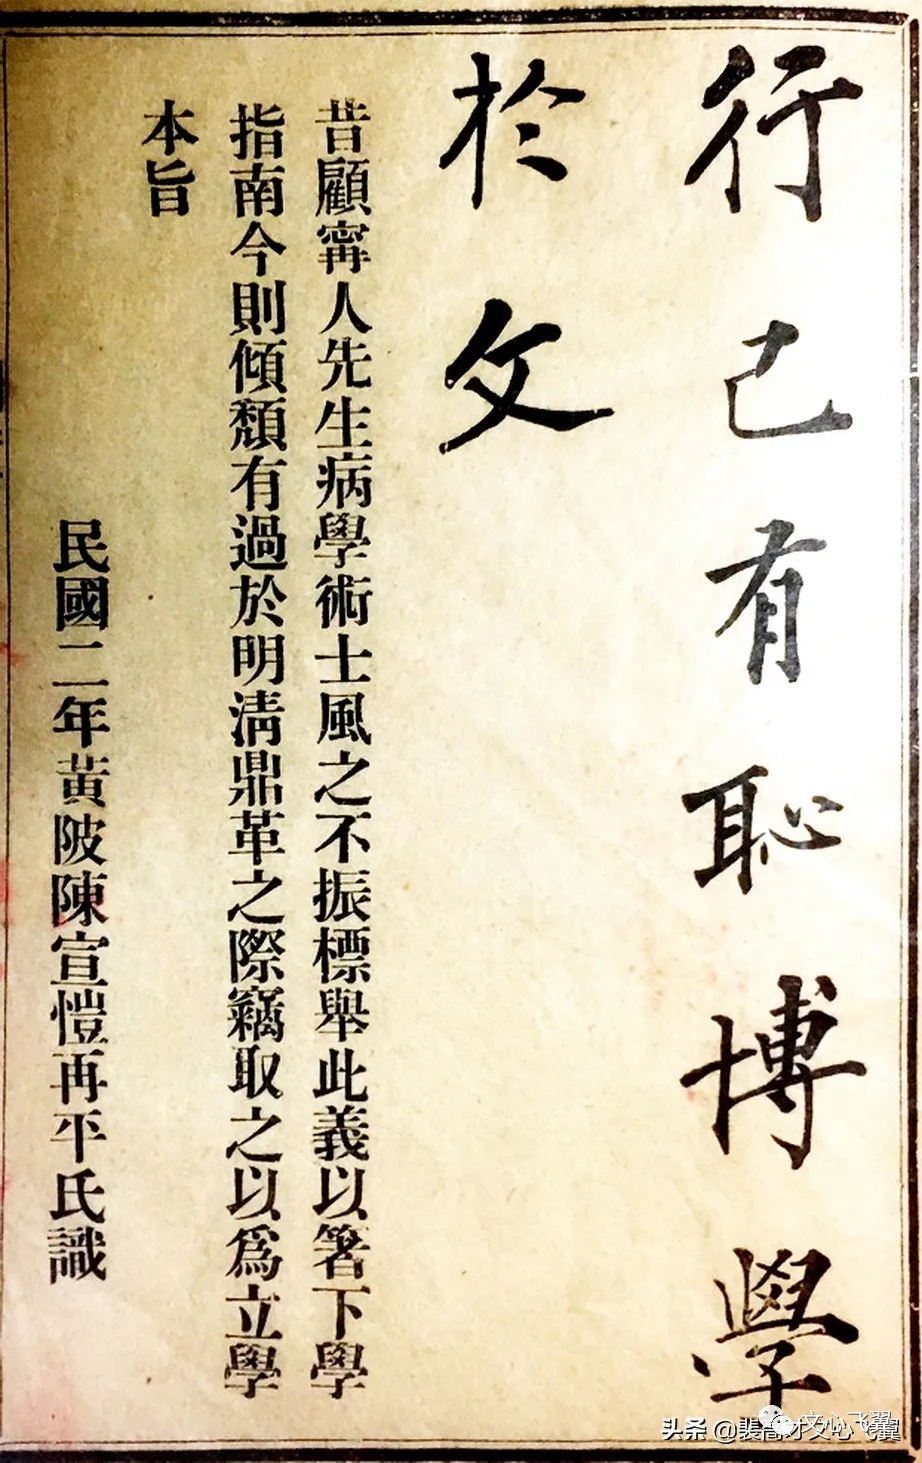 行己有恥博學
於文
昔顧甯人先生病學術士風之不振標舉此義以箸下學
指南今則傾頹有過於明清鼎革之際竊取之以爲立學
本旨
民國二年黃陂陳宣愷再平氏識
文心飞翼
头条 @裴高才文心飞翼